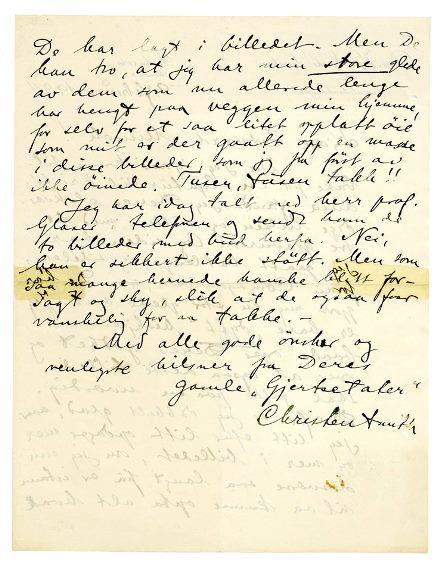 De har lagt i billedet. Men De
kan tro, at jeg har min store glede
av dem som nu allerede lenge
har hengt paa veggen min hjemme,
for selv for et saa litet opplatt öie
som mit er der gaatt opp en masse
i disse billeder, som jeg fra först av
ikke öinede. Tusen, tusen takk!!
Jeg har idag talt med herr prof.
Glaser i telefonen og sendt ham de
to billeder med bud herfra. Nei,
han er sikkert ikke stött. Men som
saa mange hernede kanske litt for-
sagt og sky, slik at de ogsaa har
vanskelig for aa takke. –
Med alle gode önsker og
venligste hilsner fra Deres
gamle „Gjertsetater"
Christen Smith